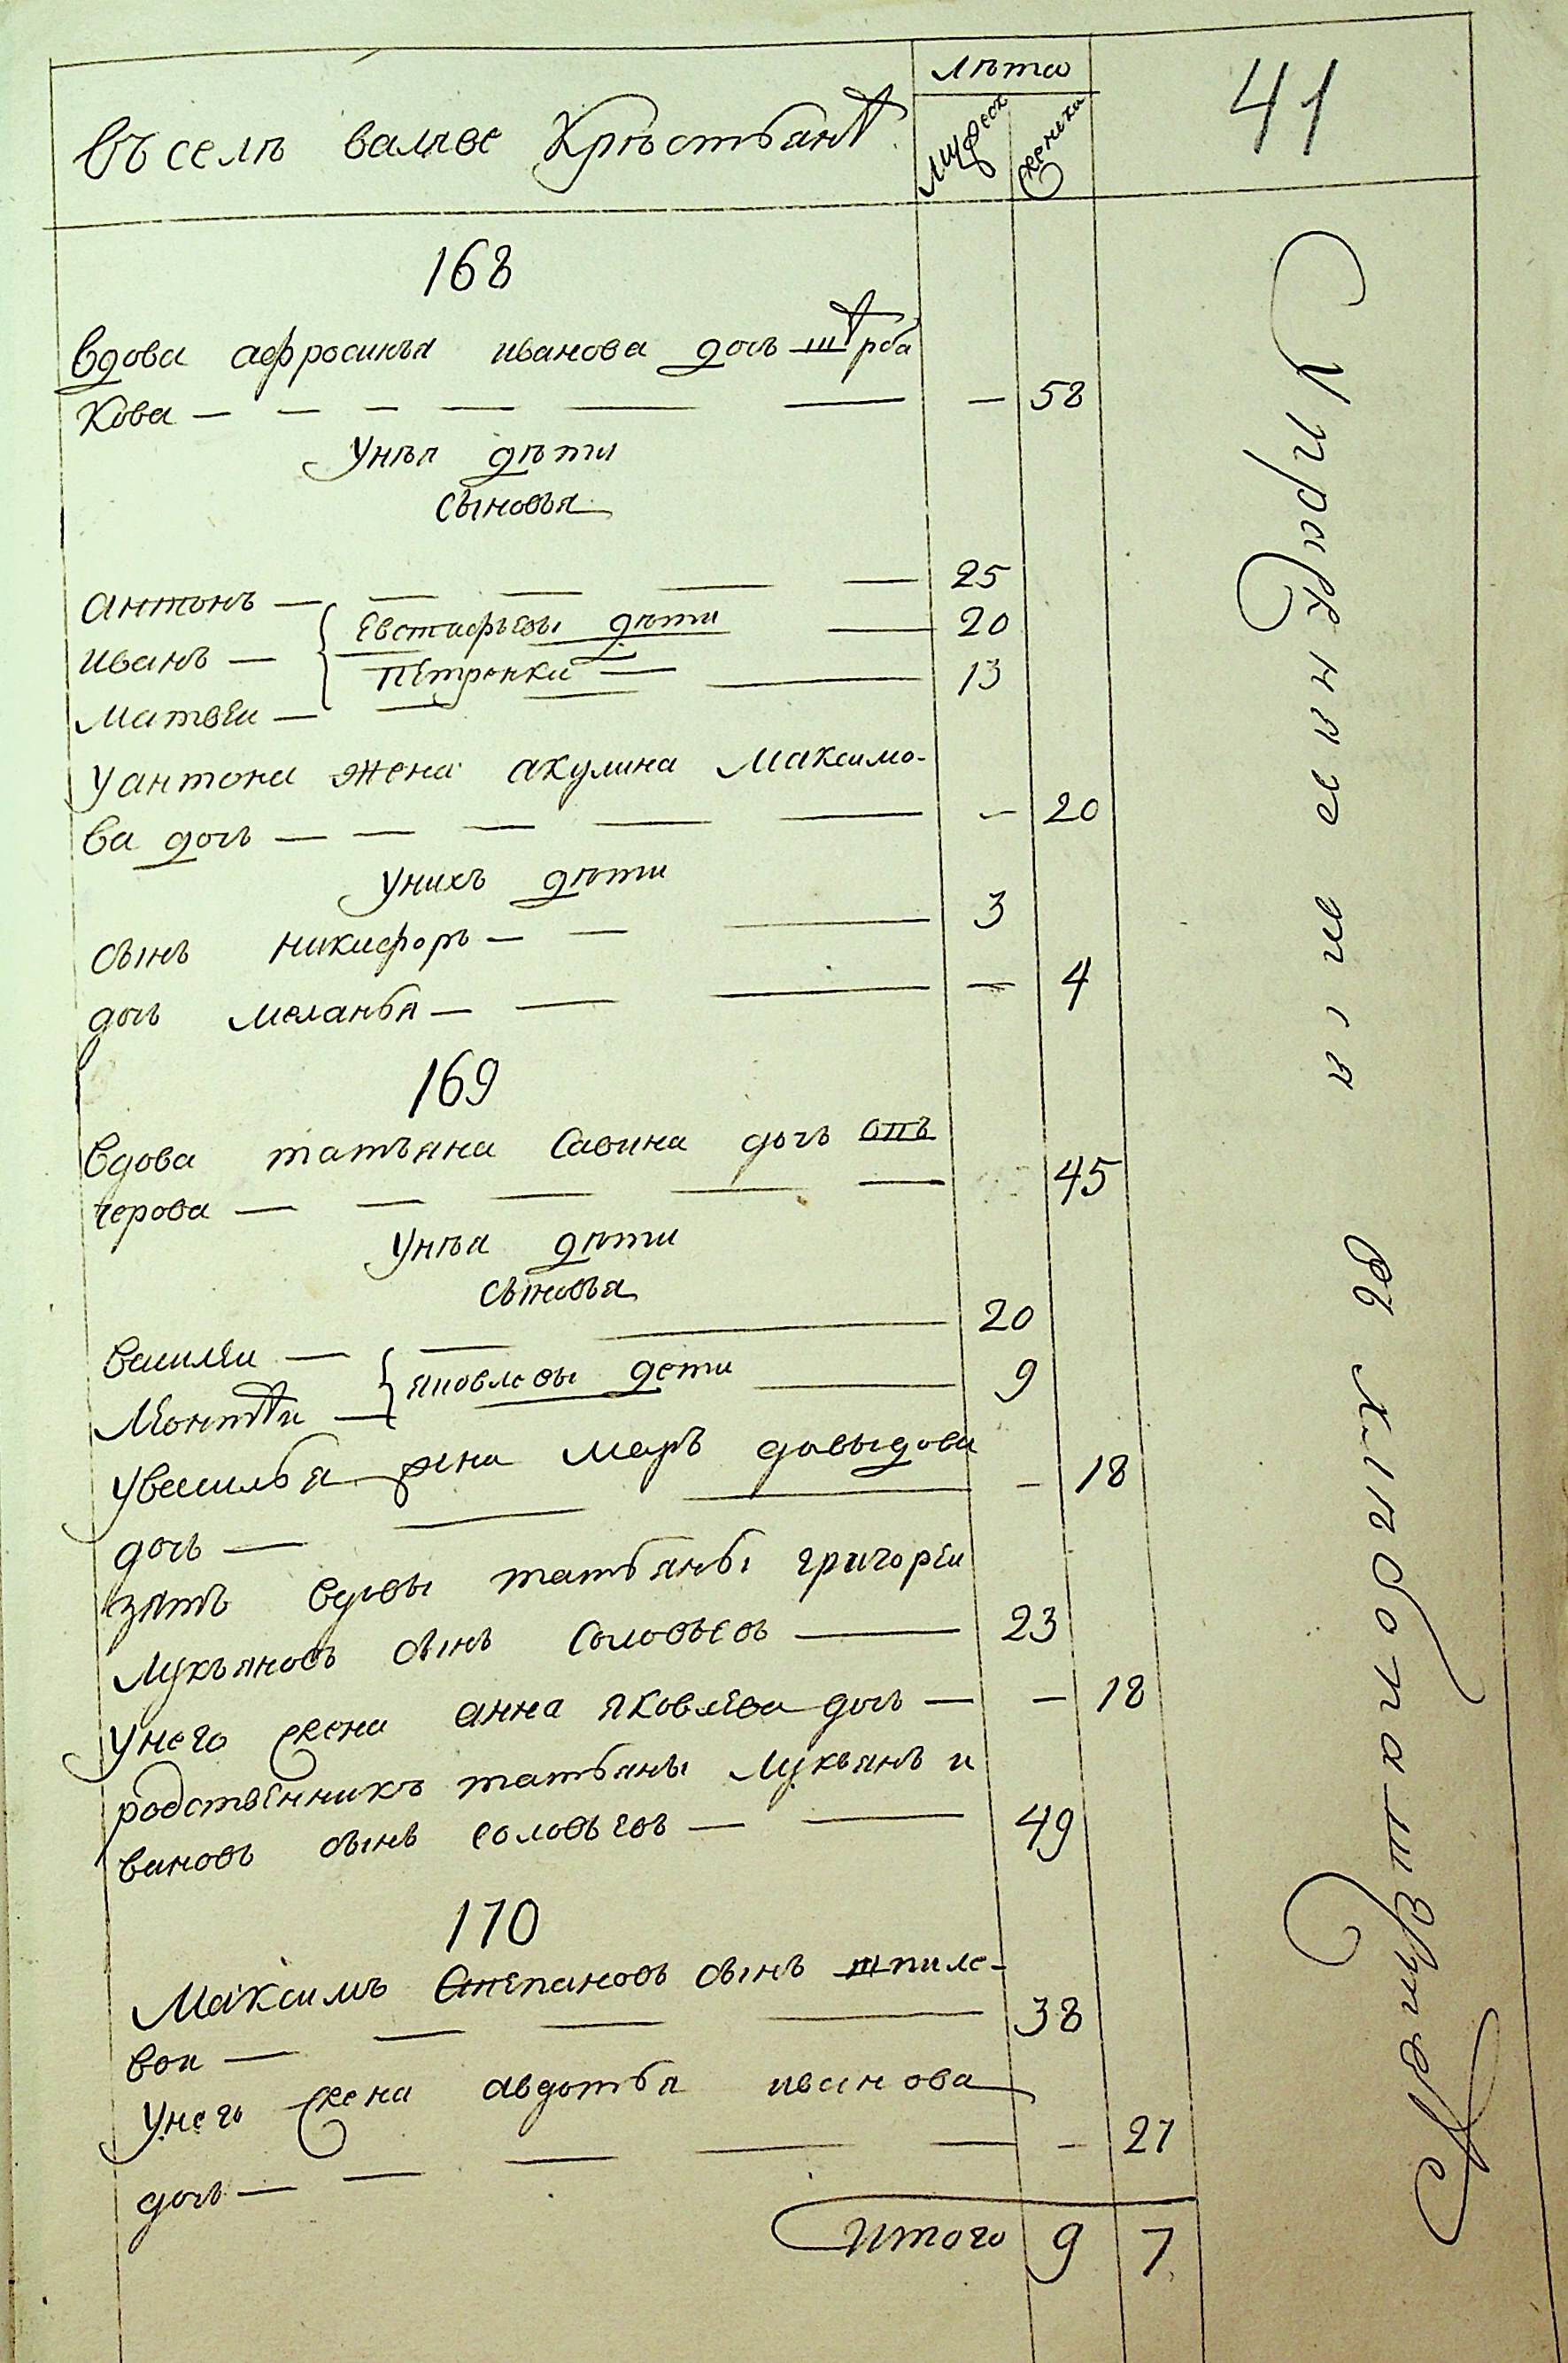 въ селѣ валѣве Крѣстьянъ
лѣта
мужеск
женска
41
168
вдова афросинья иванова дочь щерба
кова — — — — — — — 58
Унѣя дѣти
сыновья
антонъ — — — — — 25
иванъ — Евстафьевы дѣти — 20
Матвеи — Петренки — — 13
Уантона жена акулина Максимо-
ва дочь — — — — — — 20
Унихъ дѣти
сынъ никифоръ — — — 3
дочь меланья — — — — 4
169
вдова татьяна Савина дочь овъ
черова — — — — — 45
Унѣя дѣти
сыновья
василеи — — — 20
Леонтеи — яковлевы дети — 9
Увасилья жена марь давыдова
дочь — — — — 18
зять вдовы татьяны григореи
Лукьяновъ сынъ Соловьевъ — 23
Унего жена анна яковлева дочь — — 18
родственникъ татьяны Лукьянъ и
вановъ сынъ соловьевъ — — 49
170
Максимъ Степановъ сынъ шпиле-
вои — — — — 38
Унего жена авдотья иванова
дочь — — — — — — 27
Итого 9 7